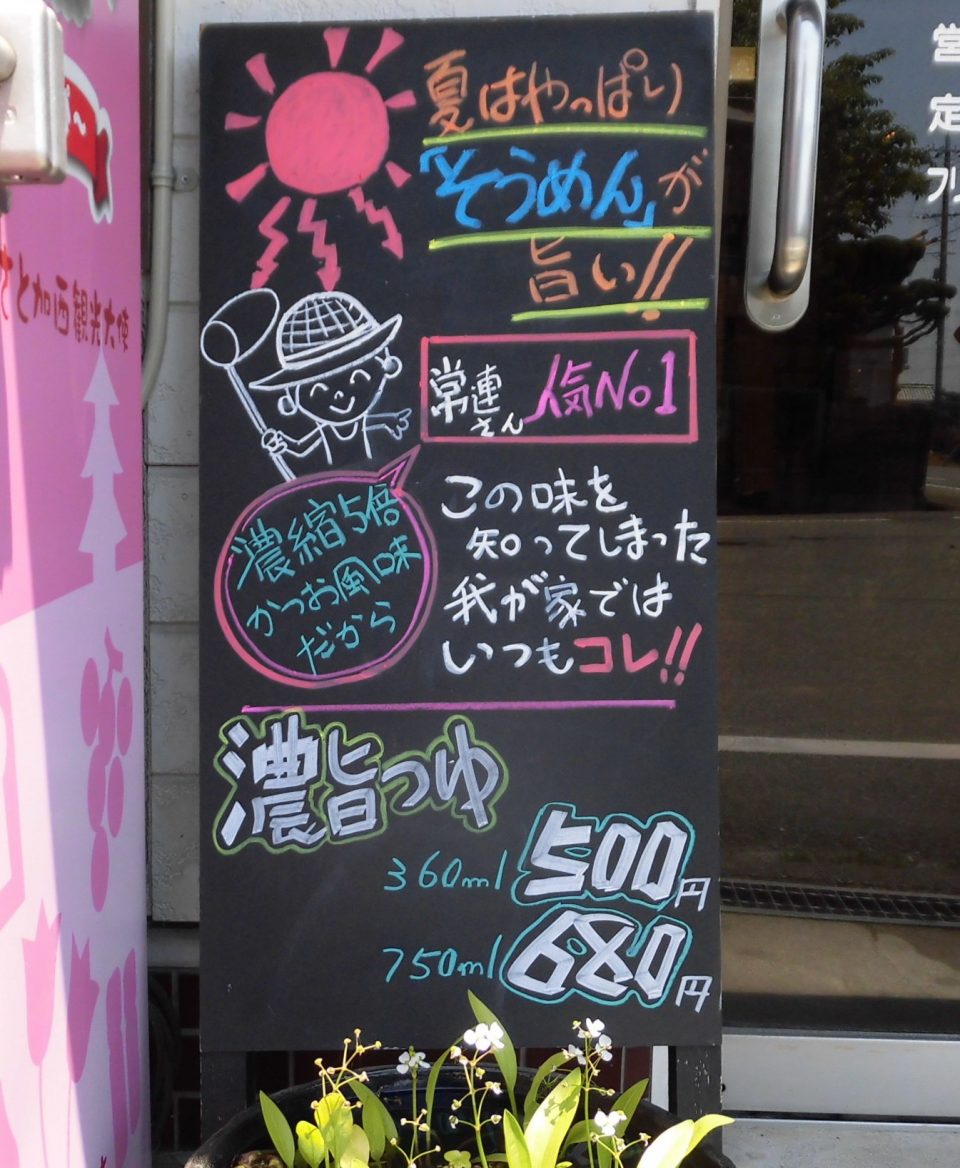 夏はやっぱり
「そうめん」が
旨い!!
常連さん人気No1
濃縮5倍
かつお風味
だから
この味を
知ってしまった
我が家では
いつもコレ!!
濃旨つゆ
360ml 500円
750ml 680円
と加西観光大使
営
定